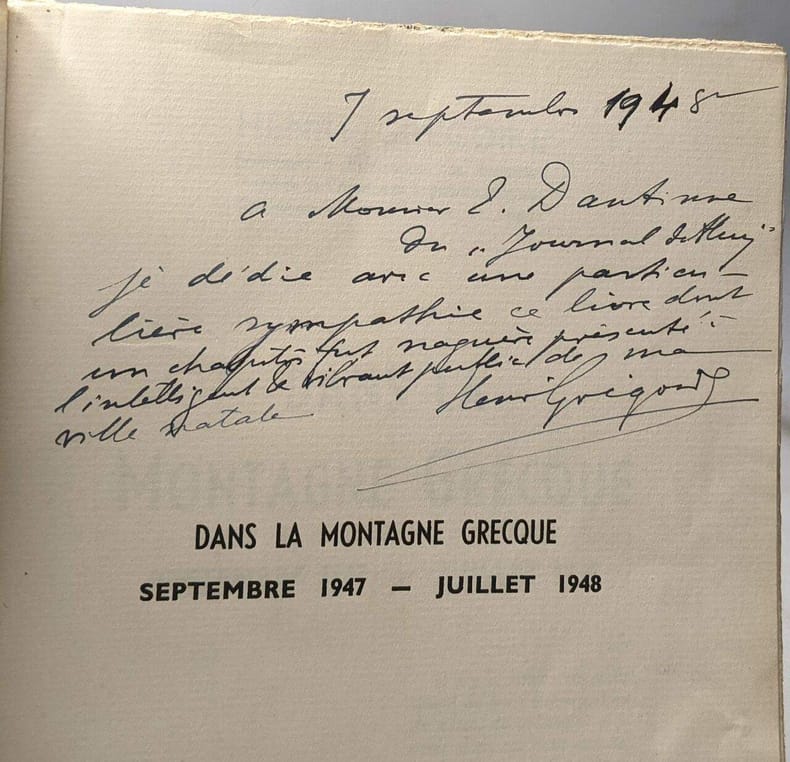 7 septembre 1948
à Monsieur E. Dantinne
du "Journal de Huy"
je dédie avec une particu-
lière sympathie ce livre dont
un chapitre fut naguère présenté à
l'intelligent & vibrant public de ma
ville natale Henri Grégoire
DANS LA MONTAGNE GRECQUE
SEPTEMBRE 1947 — JUILLET 1948